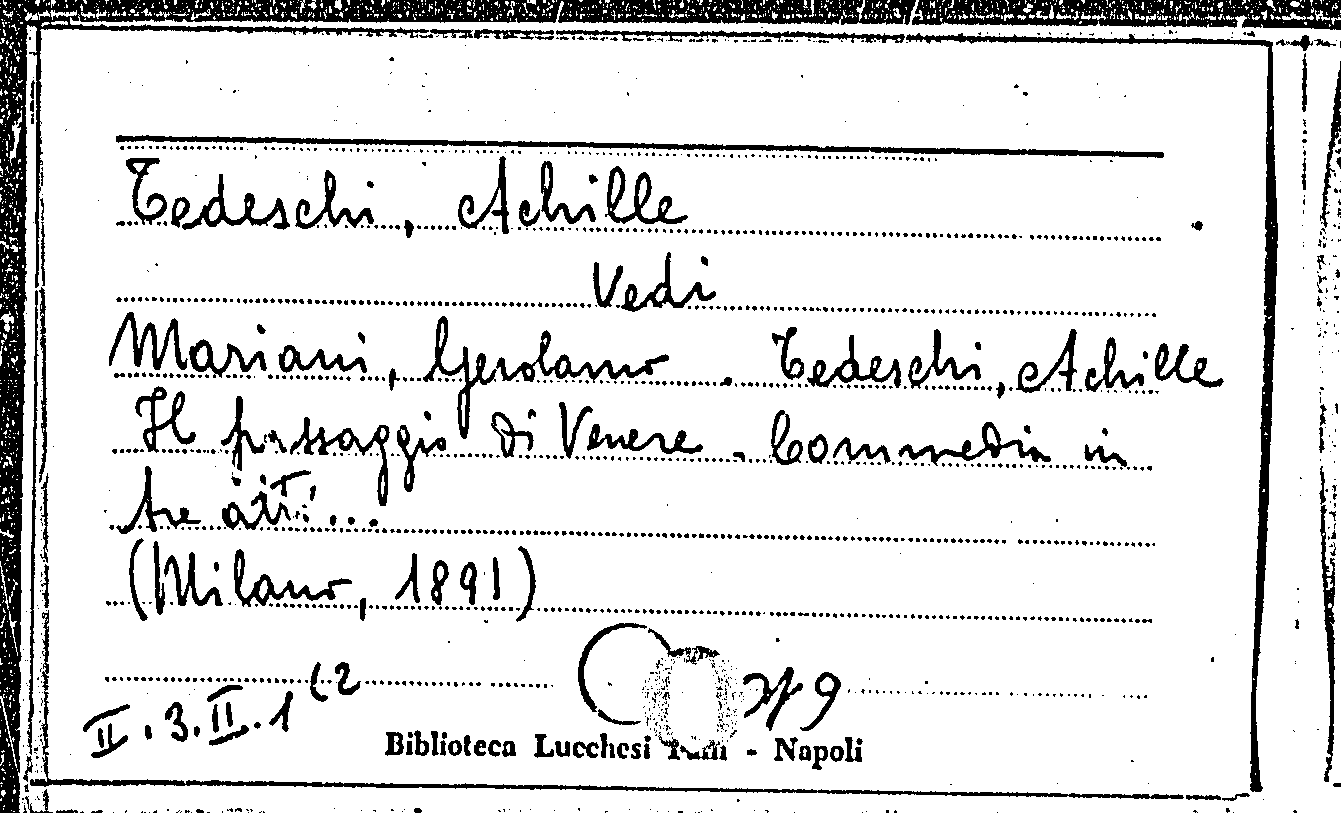 Tedeschi, Achille
Vedi
Mariani, Gerolamo. Tedeschi, Achille
Il passaggio di Venere. Commedia in
tre atti...
(Milano, 1891)
II.3.II.1(2
Biblioteca Lucchesi Palli - Napoli